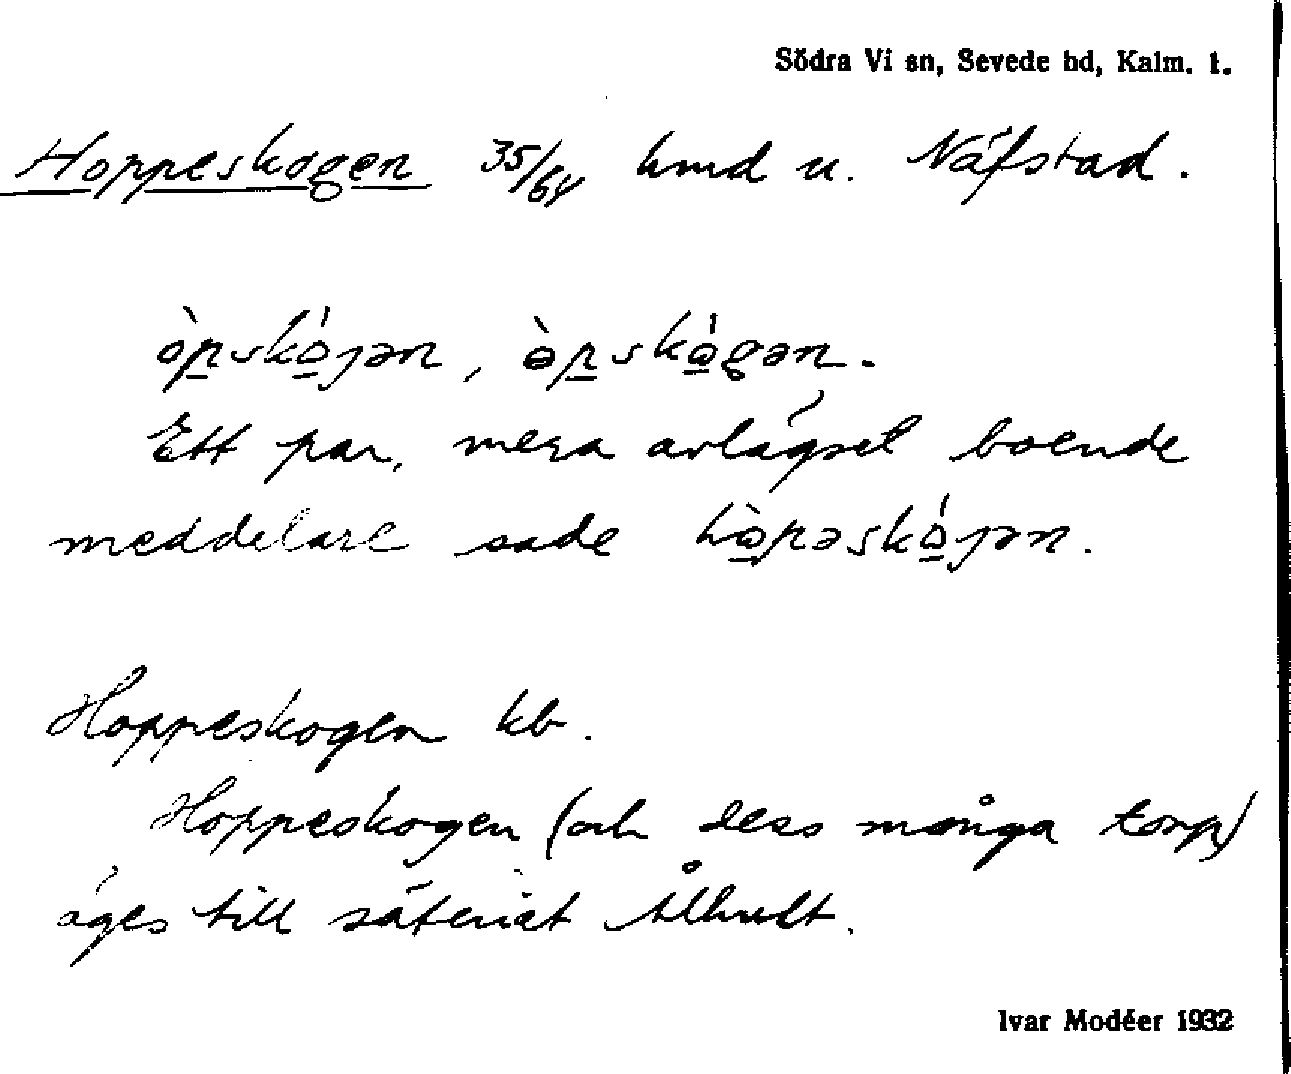 Södra Vi sn, Sevede hd, Kalm. l.
Hoppeskogen 35/64 hmd u. Näfstad.
Ett par, mera avlägset boende
meddelare sade
Hoppeskogen kb.
Hoppeskogen (och dess många torp)
äges till säteriet Ålhult.
Ivar Modéer 1932